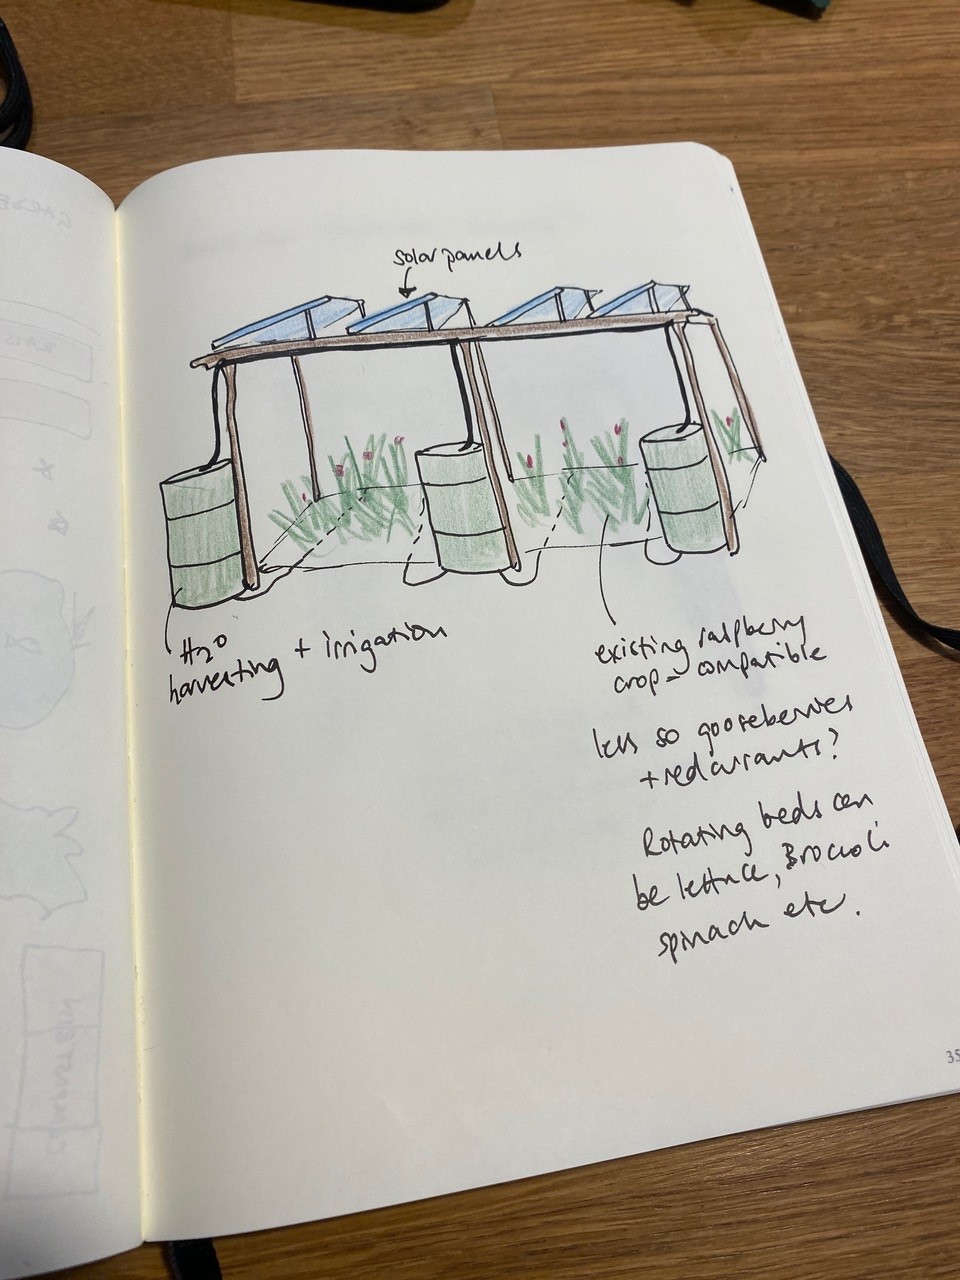 solar panels
H₂O
harvesting + irrigation
existing raspberry
crop = compatible
less so gooseberries
+ redcurrants?
Rotating beds can
be lettuce, Broccoli
spinach etc.
35